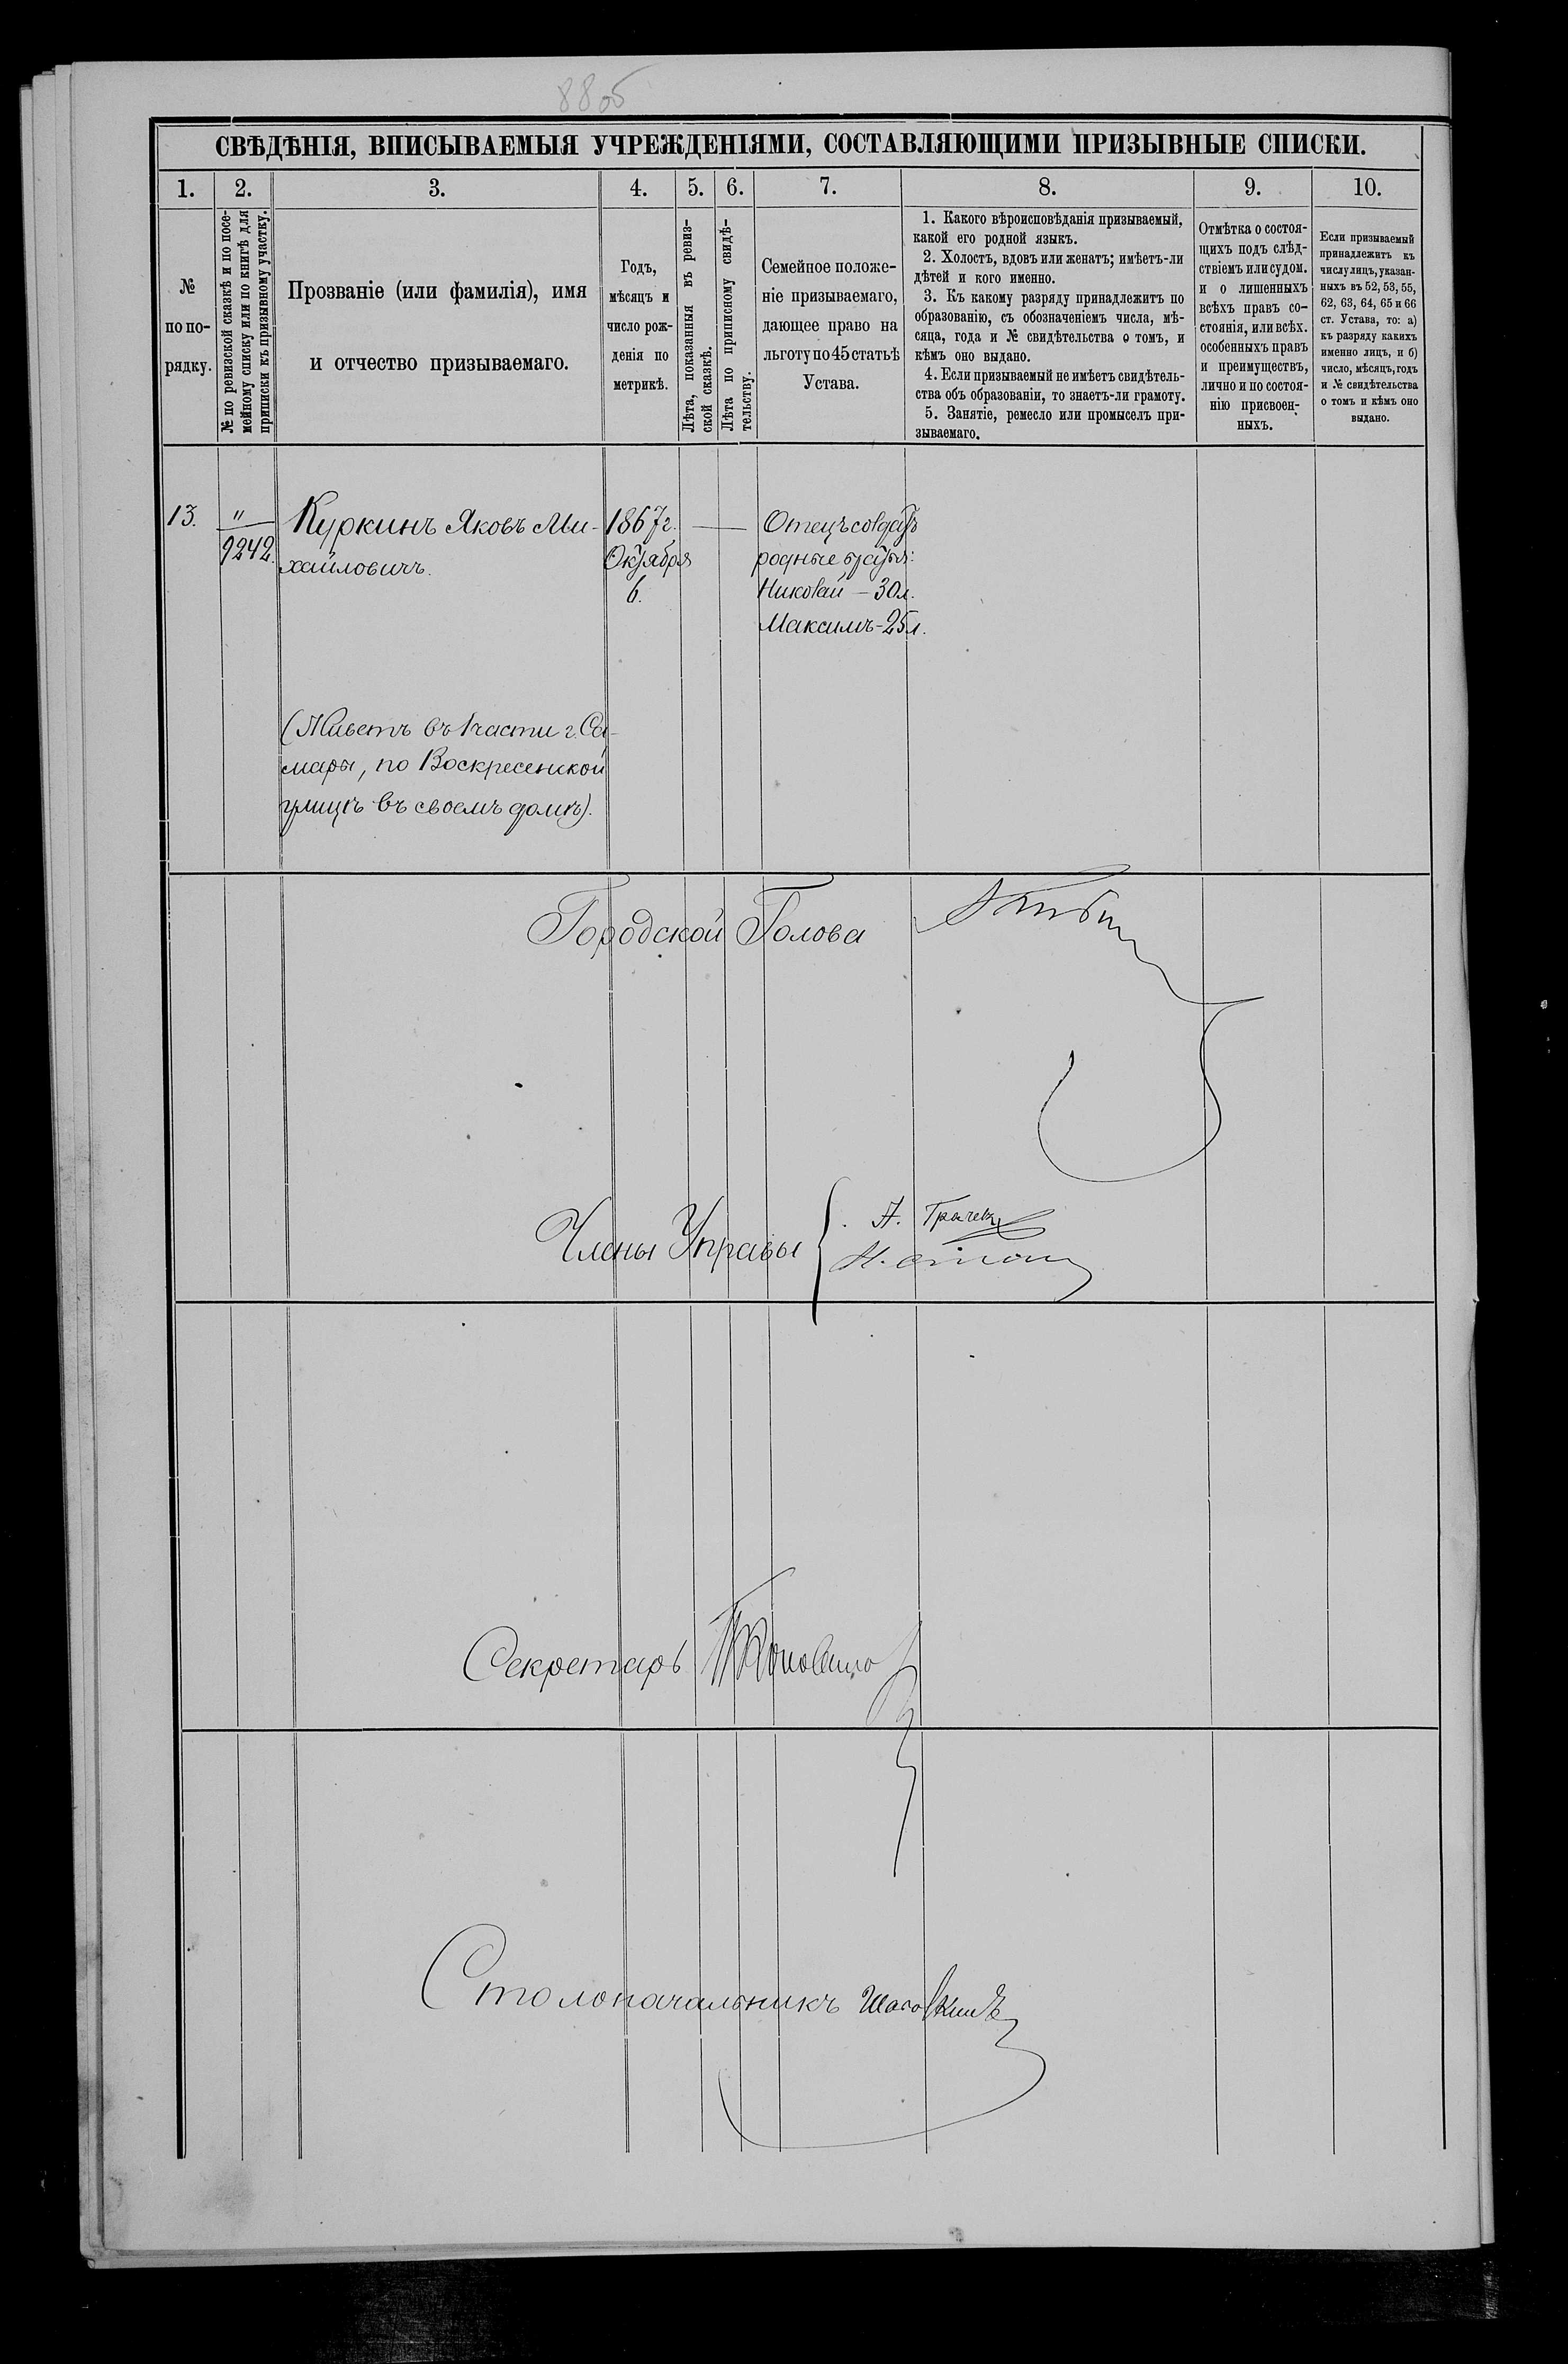 88об
СВѢДѢНІЯ, ВПИСЫВАЕМЫЯ УЧРЕЖДЕНІЯМИ, СОСТАВЛЯЮЩИМИ ПРИЗЫВНЫЕ СПИСКИ.
1. 2. 3. 4. 5. 6. 7. 8. 9. 10.
№
по по-
рядку.
№ по ревизской сказкѣ и по посе-
мейному списку или по книгѣ для
приписки къ призывному участку.
Прозваніе (или фамилія), имя
и отчество призываемаго.
Годъ,
мѣсяцъ и
число рож-
денія по
метрикѣ.
Лѣта, показанныя въ ревиз-
ской сказкѣ.
Лѣта по приписному свидѣ-
тельству.
Семейное положе-
ніе призываемаго,
дающее право на
льготу по 45 статьѣ
Устава.
1. Какого вѣроисповѣданія призываемый,
какой его родной языкъ.
2. Холостъ, вдовъ или женатъ; имѣетъ-ли
дѣтей и кого именно.
3. Къ какому разряду принадлежитъ по
образованію, съ обозначеніемъ числа, мѣ-
сяца, года и № свидѣтельства о томъ, и
кѣмъ оно выдано.
4. Если призываемый не имѣетъ свидѣтель-
ства объ образованіи, то знаетъ-ли грамоту.
5. Занятіе, ремесло или промыселъ при-
зываемаго.
Отмѣтка о состоя-
щихъ подъ слѣд-
ствіемъ или судом.
и о лишенныхъ
всѣхъ правъ со-
стоянія, или всѣх.
особенныхъ правъ
и преимуществъ,
лично и по состоя-
нію присвоен-
ныхъ.
Если призываемый
принадлежитъ къ
числу лицъ, указан-
ныхъ въ 52, 53, 55,
62, 63, 64, 65 и 66
ст. Устава, то: а)
къ разряду какихъ
именно лицъ, и б)
число, мѣсяцъ, годъ
и № свидѣтельства
о томъ и кѣмъ оно
выдано.
13.
"
9242.
Куркинъ Яковъ Ми-
хайловичъ.
(Живетъ въ 1 части г. Са-
мары, по Воскресенской
улицѣ въ своемъ домѣ).
1867 г.
Октября
6.
—
Отецъ солдатъ
родные братья:
Николай – 30 л.
Максимъ – 25 л.
Городской Голова
Члены Управы
А. Грачевъ
Секретарь
Столоначальникъ